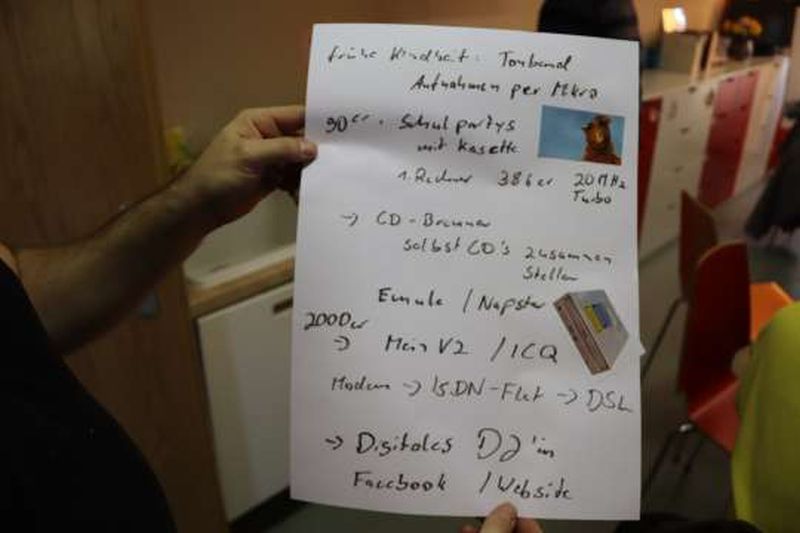 frühe Kindheit: Tonband
Aufnahmen per Mikro
90er. Schulpartys
mit Kasette
1. Rechner 386er 20 MHz
Turbo
→ CD-Brenner
selbst CD's zusammen
stellen
Emule / Napster
2000er
→ Mein VZ / ICQ
Modem → ISDN-Flat → DSL
→ Digitales DJ'in
Facebook / Webside